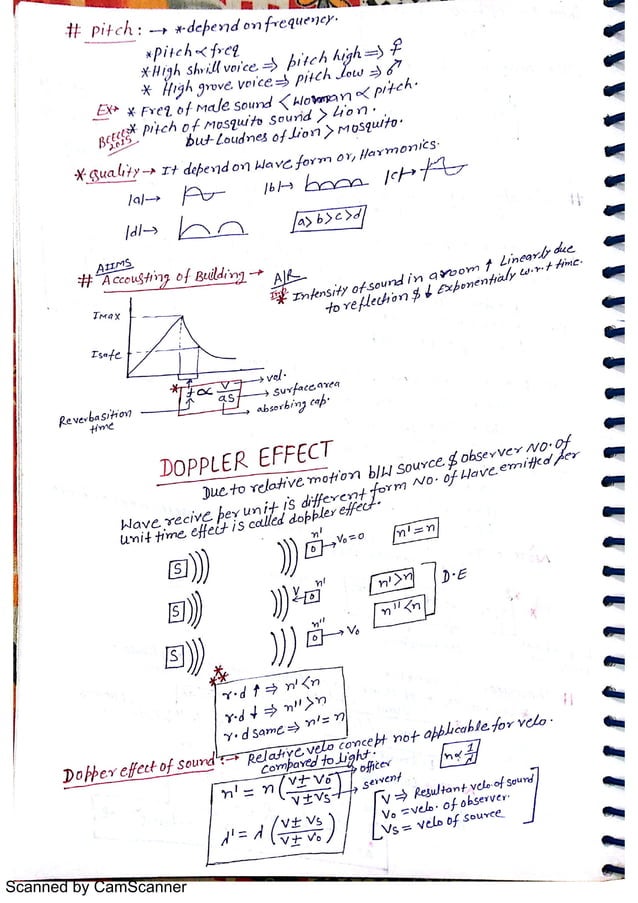 # Pitch: → * depend on frequency.
* Pitch ∝ freq
* High shrill voice ⇒ pitch high ⇒ ♀
* High grove voice ⇒ pitch low ⇒ ♂
Ex→ * Freq of Male sound < Woman ∝ pitch.
2015 * pitch of Mosquito sound > lion.
but Loudnes of lion > Mosquito.
* Quality → It depend on Wave form or, Harmonics.
|a|→ |b|→ |c|→
|d|→ a>b>c>d
AIIMS
# Accousting of Building → A/R
* Intensity of sound in a room ↑ Linearly due
to reflection & ↓ Exponentialy w.r.t time.
Imax
Isafe
* t ∝ V/as → vol.
→ surface area
→ absorbing cap.
Reverbasition
time
DOPPLER EFFECT
Due to relative motion b/w source & observer No. of
Wave recive per unit is different form No. of Wave emitted per
unit time effect is called doppler effect.
S n' O → Vo=0 n'=n
S V n' O n'>n
n''<n D·E
S n'' O → Vo
**
r.d ↑ ⇒ n'<n
r.d ↓ ⇒ n''>n
r.d same ⇒ n'=n
Dopper effect of sound :→ Relative velo concept not applicable for velo.
compared to light.
n' = n (V±Vo / V±Vs) → officer
→ servent
n ∝ 1/λ
λ' = λ (V±Vs / V±Vo)
V ⇒ Resultant velo of sound
Vo = velo. of observer.
Vs = velo of source
Scanned by CamScanner